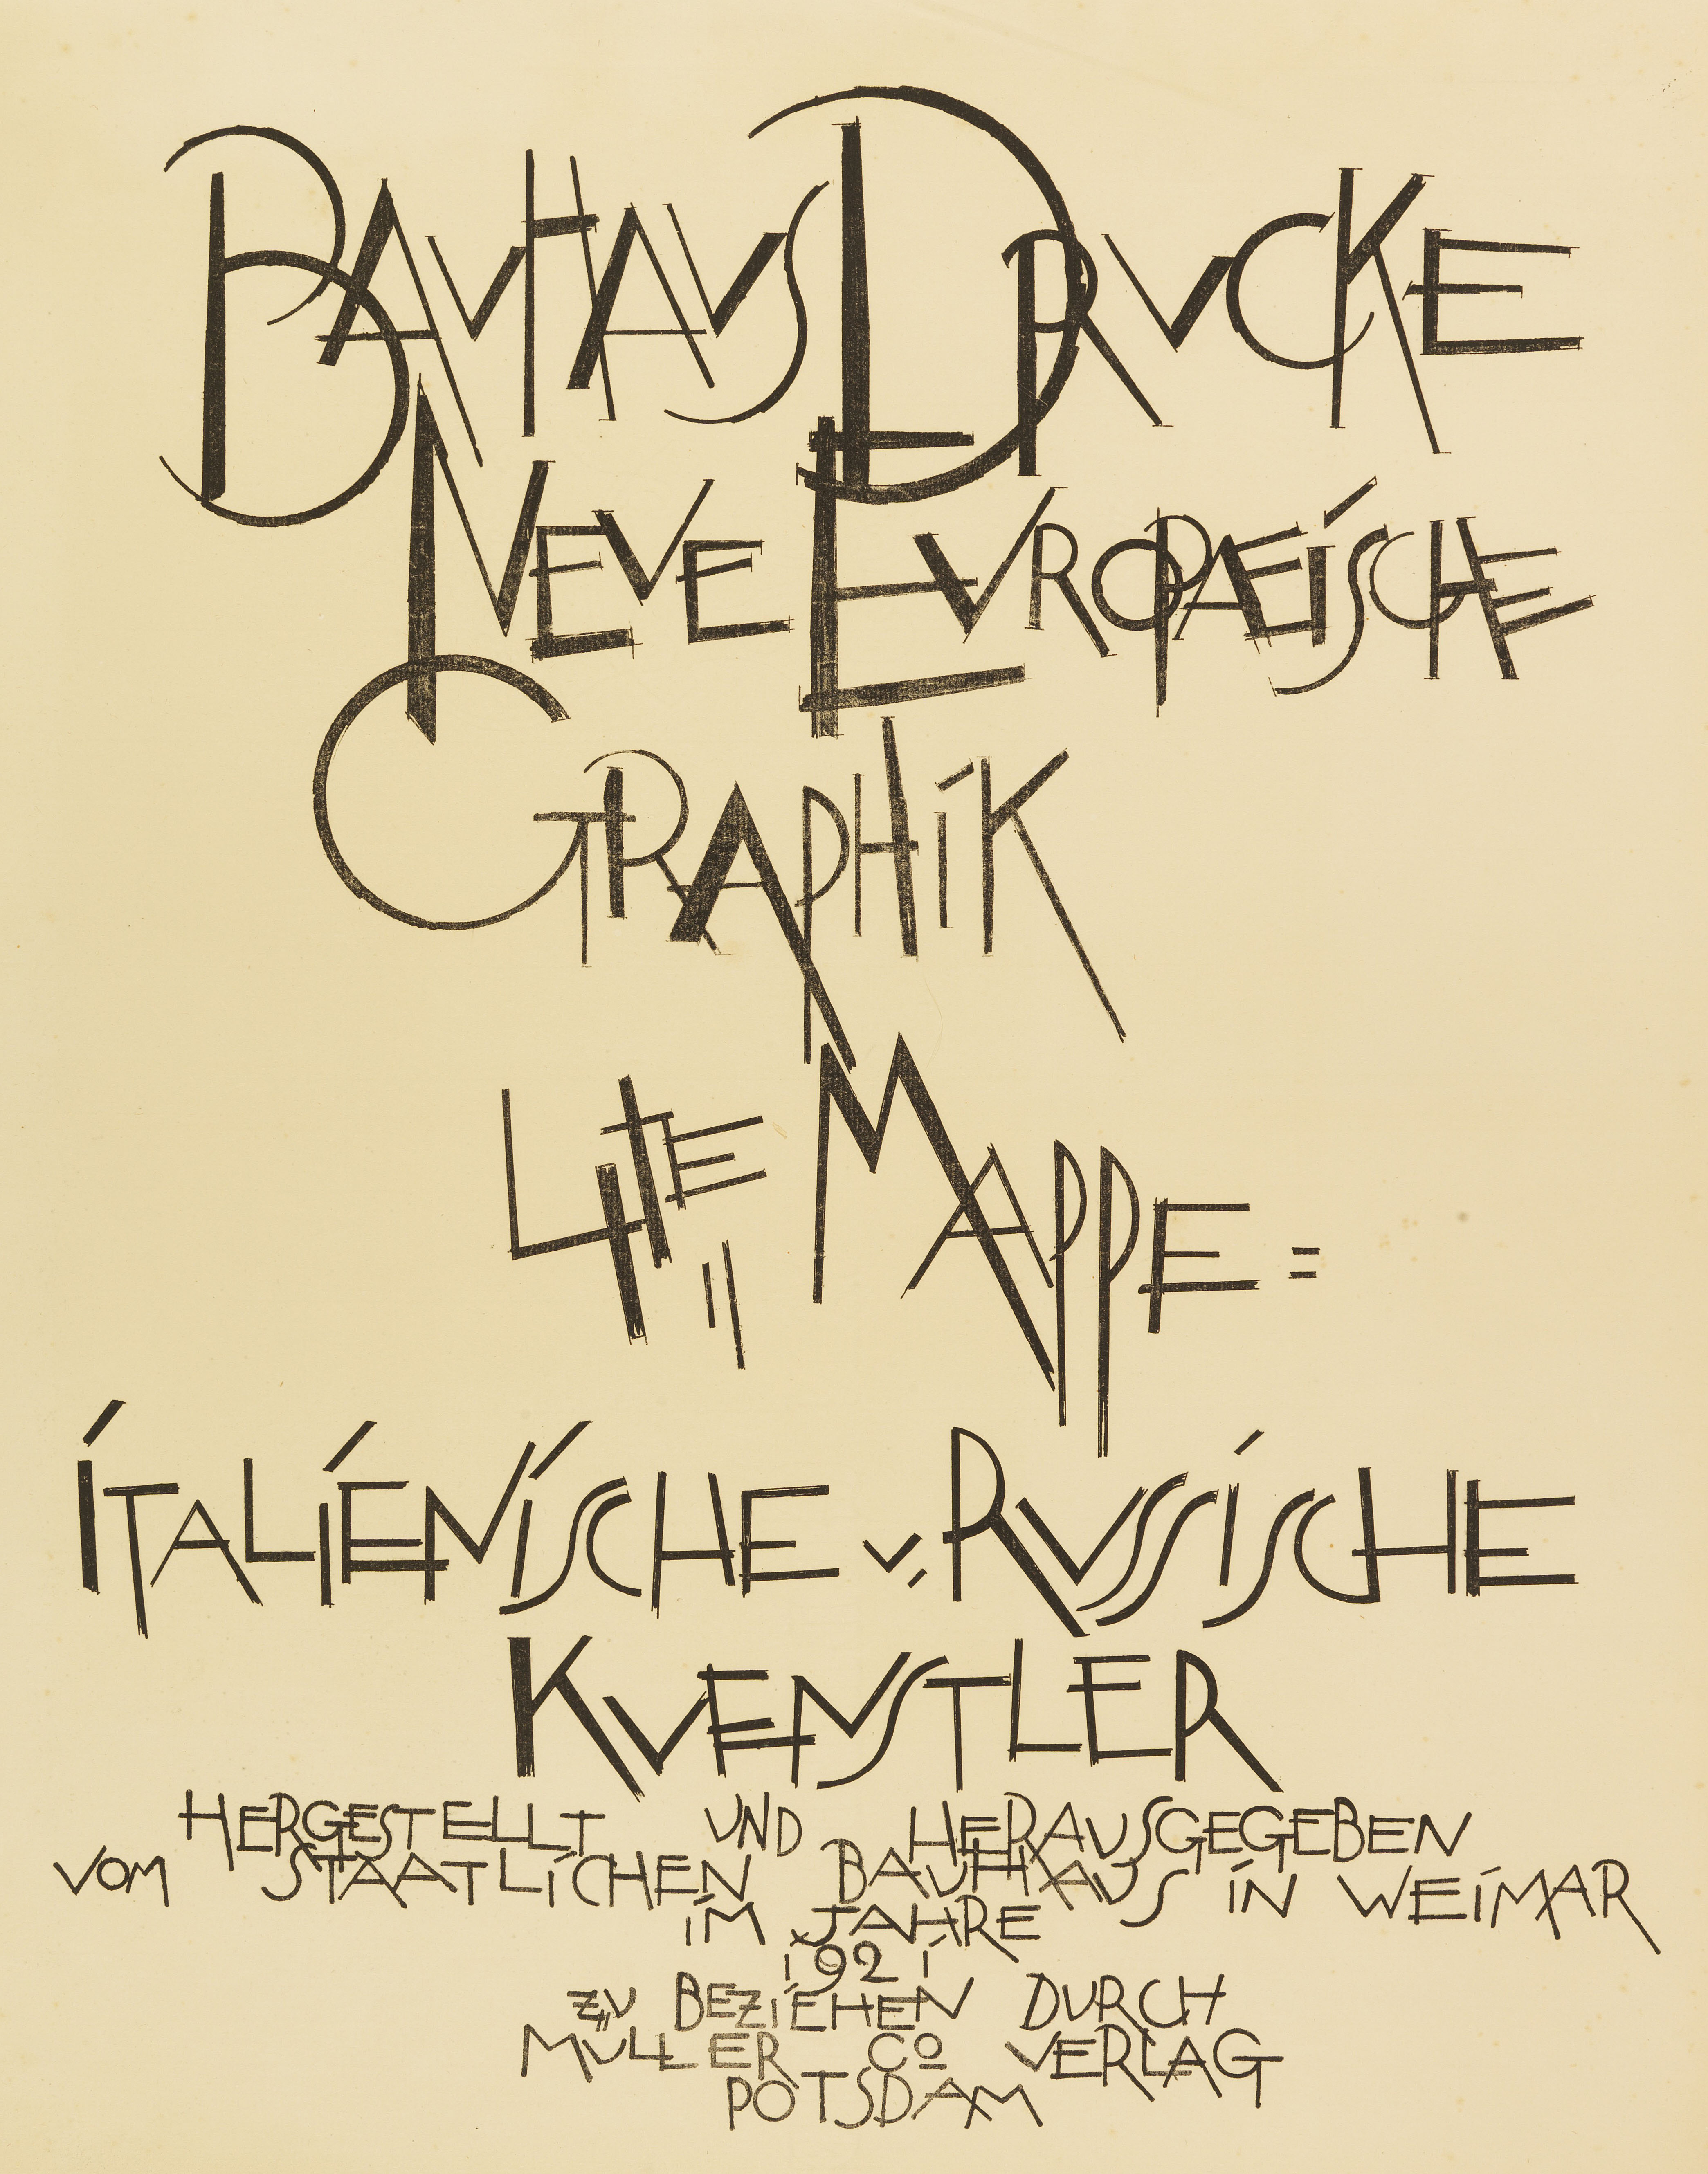 BAUHAUS DRUCKE
NEUE EUROPAEISCHE
GRAPHIK
4TE MAPPE =
ITALIENISCHE U. RUSSISCHE
KUENSTLER
HERGESTELLT UND HERAUSGEGEBEN
VOM STAATLICHEN BAUHAUS IN WEIMAR
IM JAHRE
1921
ZU BEZIEHEN DURCH
MULLER CO VERLAG
POTSDAM